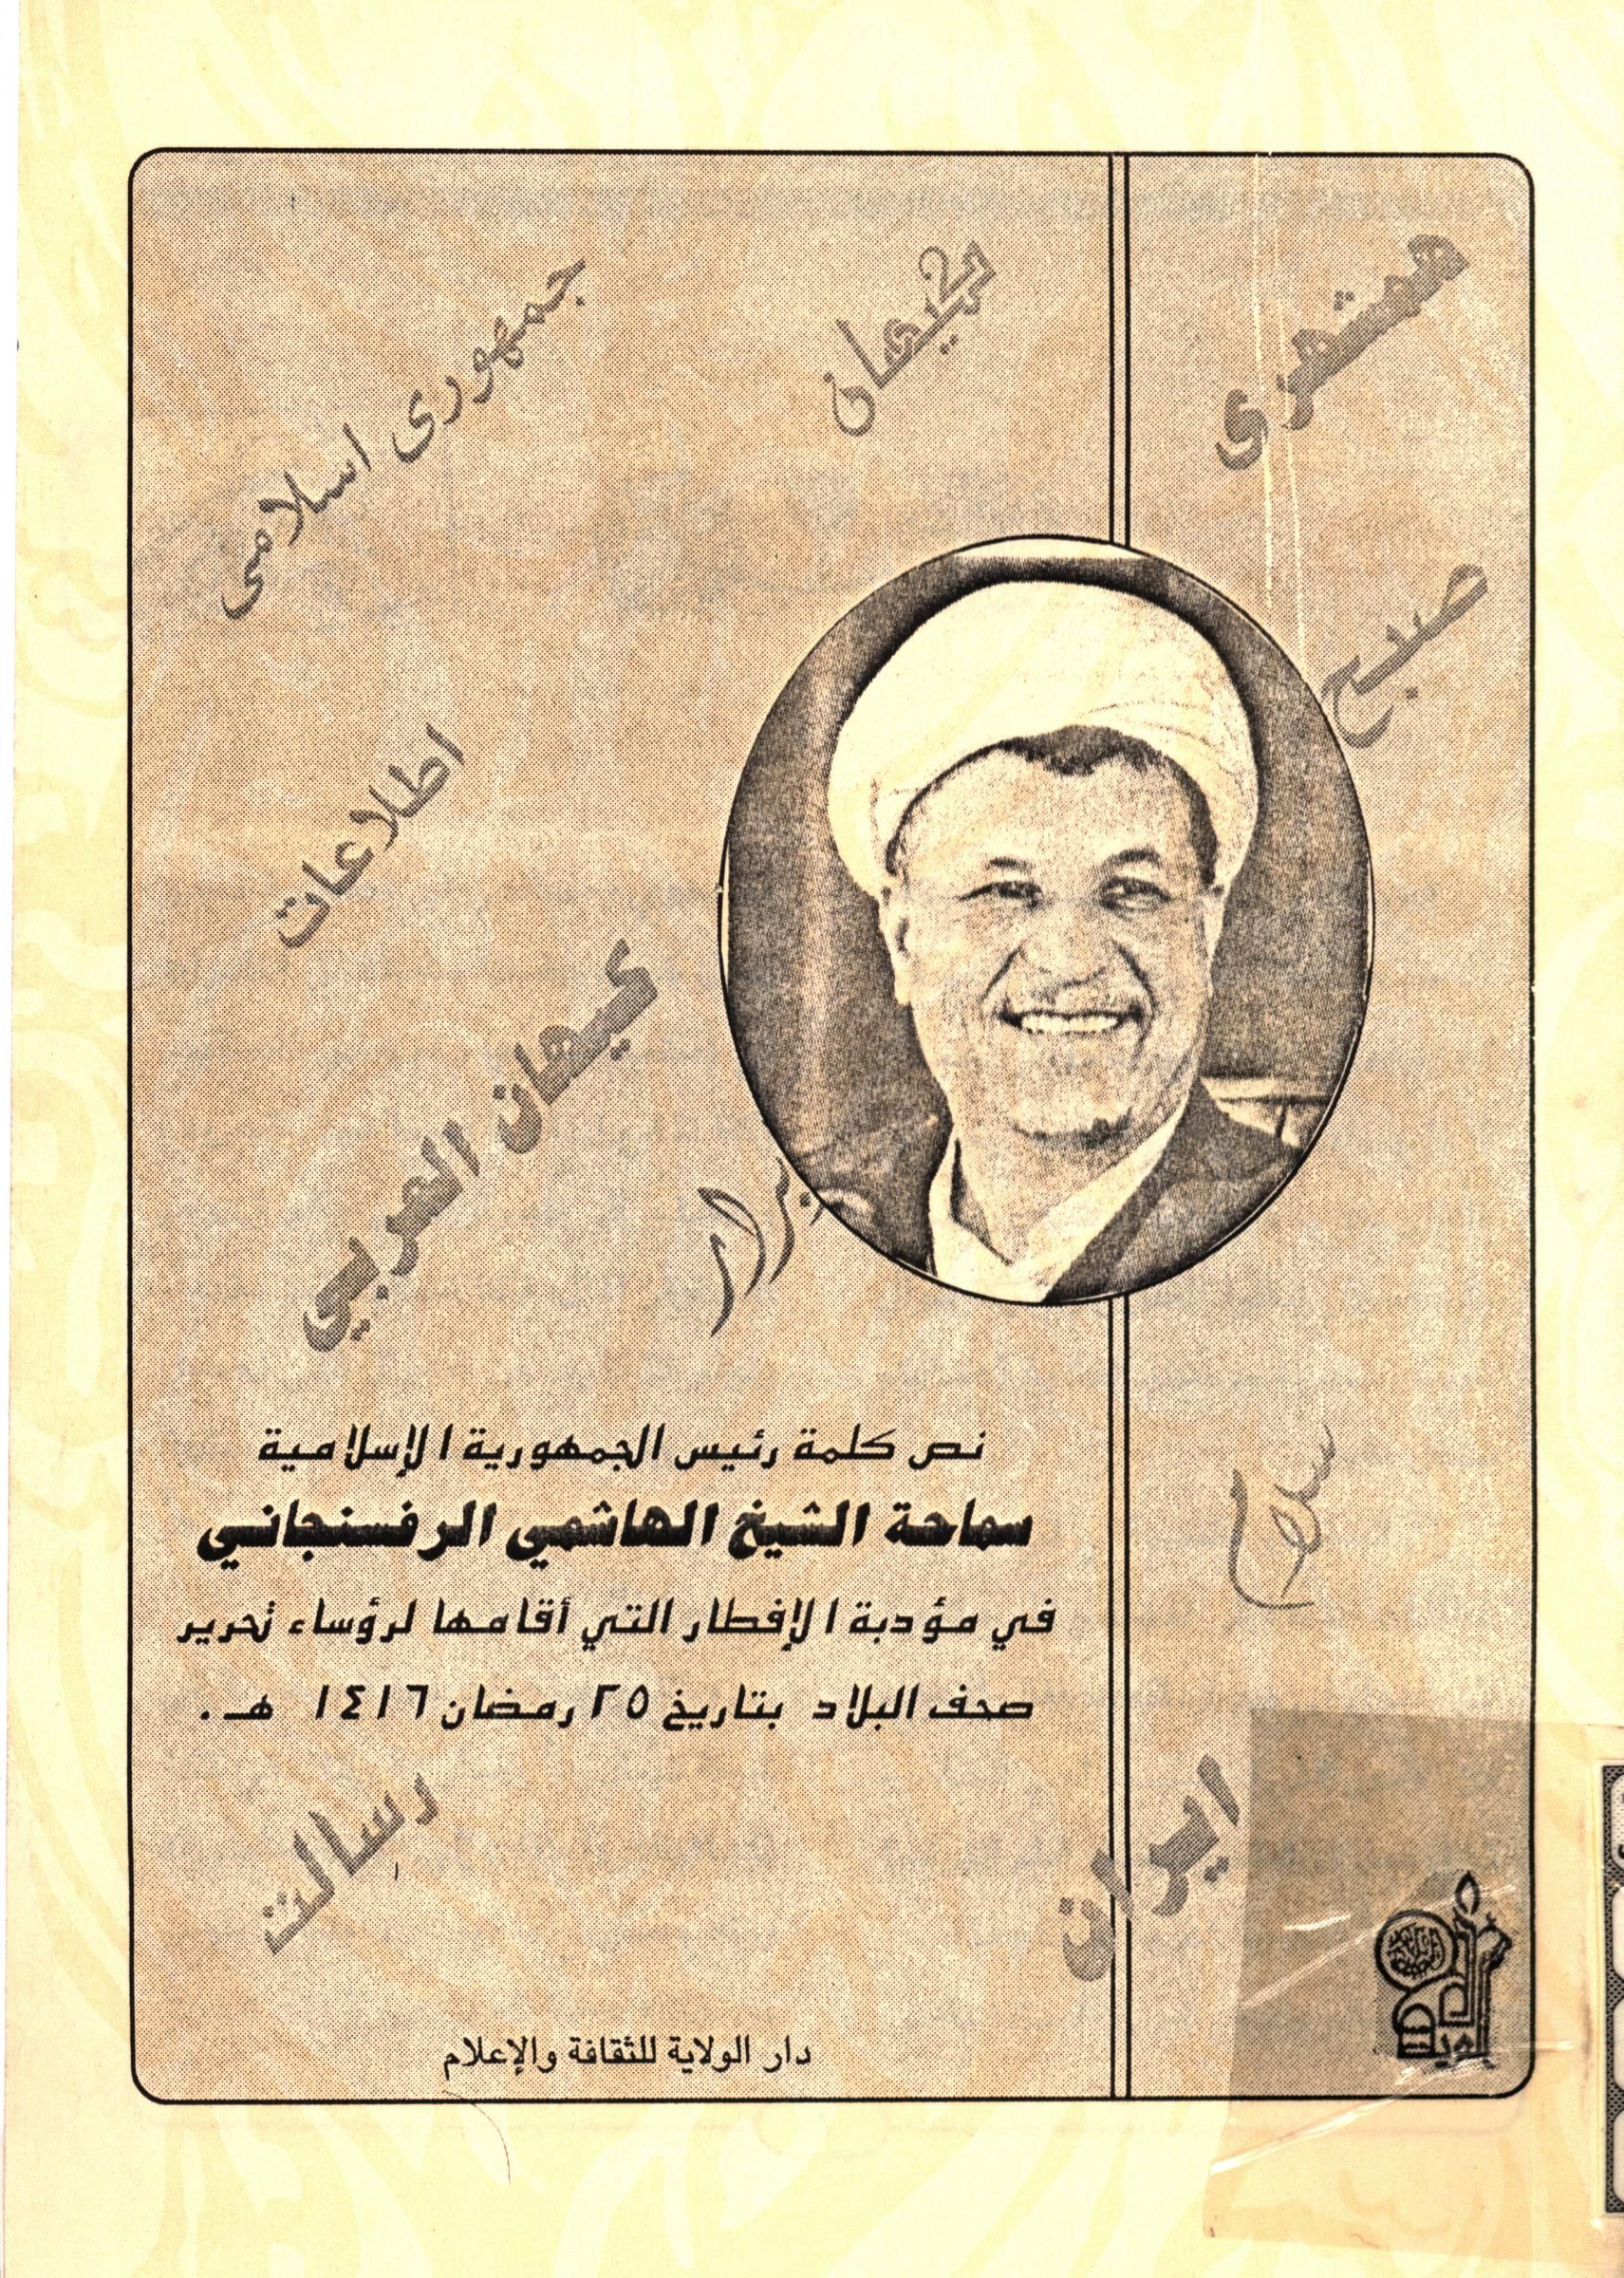 جمهوری اسلامی
کیهان
همشهری
صبح
اطلاعات
كيهان العربي
ابرار
سلام
نص كلمة رئيس الجمهورية الإسلامية
سماحة الشيخ الهاشمي الرفسنجاني
في مؤدبة الإفطار التي أقامها لرؤساء تحرير
صحف البلاد بتاريخ ٢٥ رمضان ١٤١٦ هـ .
رسالت
ایران
دار الولاية للثقافة والإعلام